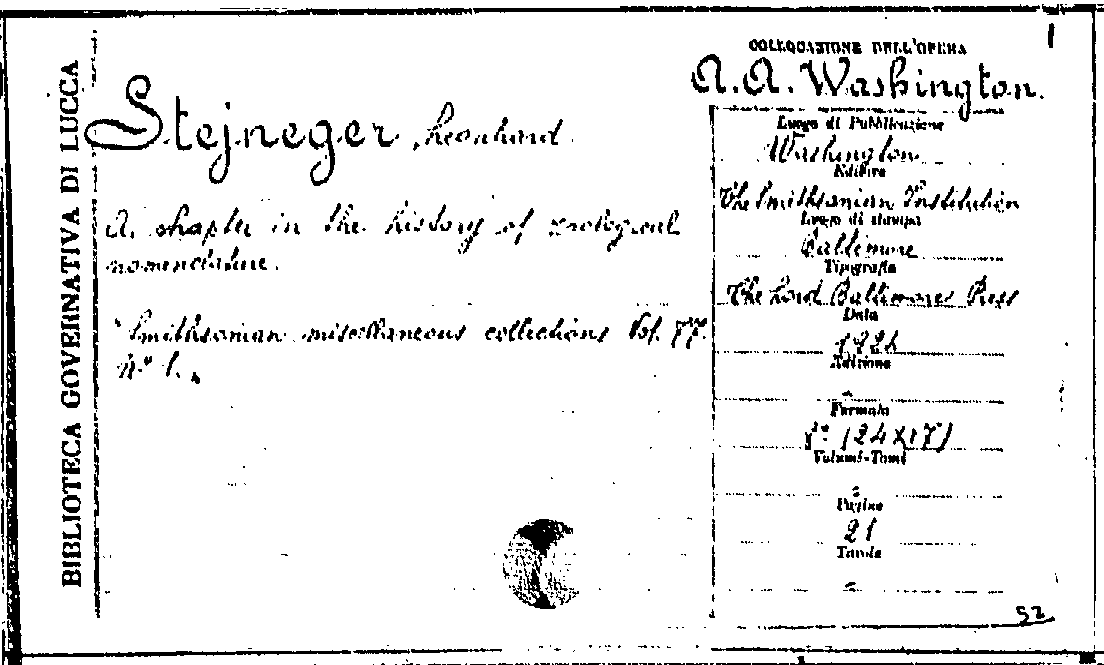 BIBLIOTECA GOVERNATIVA DI LUCCA
Stejneger, Leonhard.
A chapter in the history of zoological
nomenclature.
"Smithsonian miscellaneous collections Vol. 77.
N° 1.„
1
COLLOCAZIONE DELL'OPERA
A.A. Washington.
Luogo di Pubblicazione
Washington
Editore
The Smithsonian Institution
Luogo di stampa
Baltimore
Tipografia
The Lord Baltimore Press
Data
1924
Edizione
-
Formato
8° (24x17)
Volumi-Tomi
-
Pagine
21
Tavole
-
52